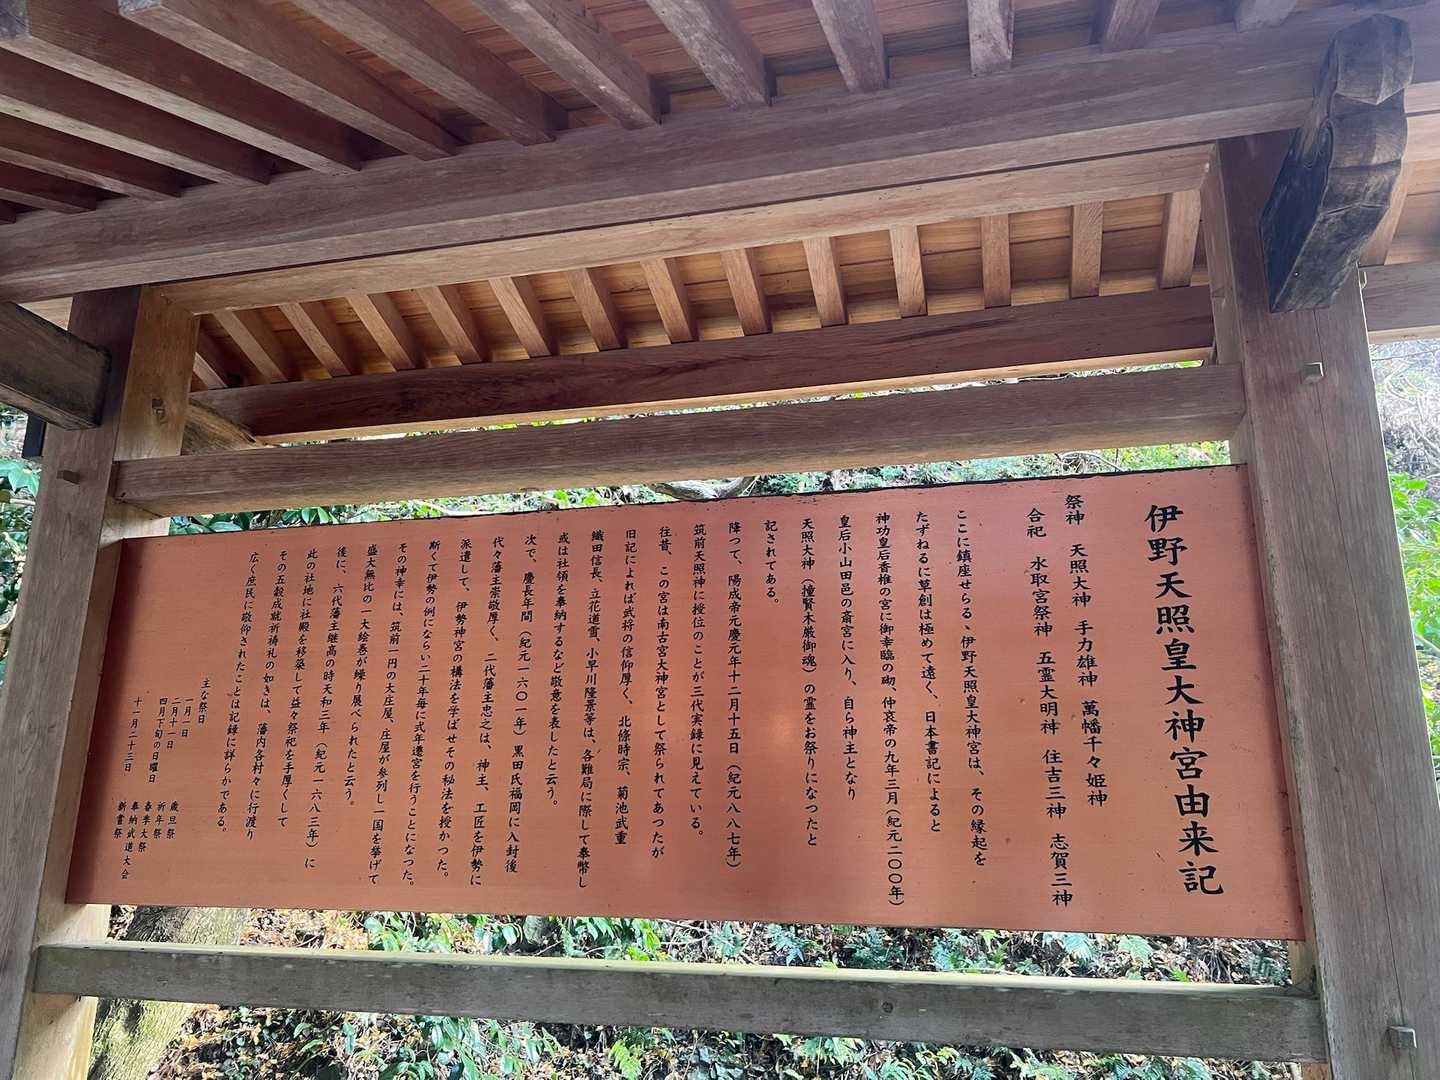 伊野天照皇大神宮由来記
祭神 天照大神 手力雄神 萬幡千々姫神
合祀 水取宮祭神 五霊大明神 住吉三神 志賀三神
ここに鎮座せらるゝ伊野天照皇大神宮は、その縁起を
たずねるに草創は極めて遠く、日本書記によると
神功皇后香椎の宮に御幸臨の砌、仲哀帝の九年三月(紀元二〇〇年)
皇后小山田邑の斎宮に入り、自ら神主となり
天照大神(撞賢木厳御魂)の霊をお祭りになつたと
記されてある。
降つて、陽成帝元慶元年十二月十五日(紀元八八七年)
筑前天照神に授位のことが三代実録に見えている。
往昔、この宮は南古宮大神宮として祭られてあつたが
旧記によれば武将の信仰厚く、北條時宗、菊池武重
織田信長、立花道雪、小早川隆景等は、各難局に際して奉幣し
或は社領を奉納するなど敬意を表したと云う。
次で、慶長年間(紀元一六〇一年)黒田氏福岡に入封後
代々藩主崇敬厚く、二代藩主忠之は、神主、工匠を伊勢に
派遣して、伊勢神宮の構法を学ばせその秘法を授かつた。
斯くて伊勢の例にならい二十年毎に式年遷宮を行うことになつた。
その神幸には、筑前一円の大庄屋、庄屋が参列し一国を挙げて
盛大無比の一大絵巻が繰り展べられたと云う。
後に、六代藩主継高の時天和三年(紀元一六八三年)に
此の社地に社殿を移築して益々祭祀を手厚くして
その五穀成就祈祷礼の如きは、藩内各村々に行渡り
広く庶民に敬仰されたことは記録に詳らかである。
主な祭日
一月一日 歳旦祭
二月十一日 祈年祭
四月下旬の日曜日 春季大祭
奉納武道大会
十一月二十三日 新嘗祭